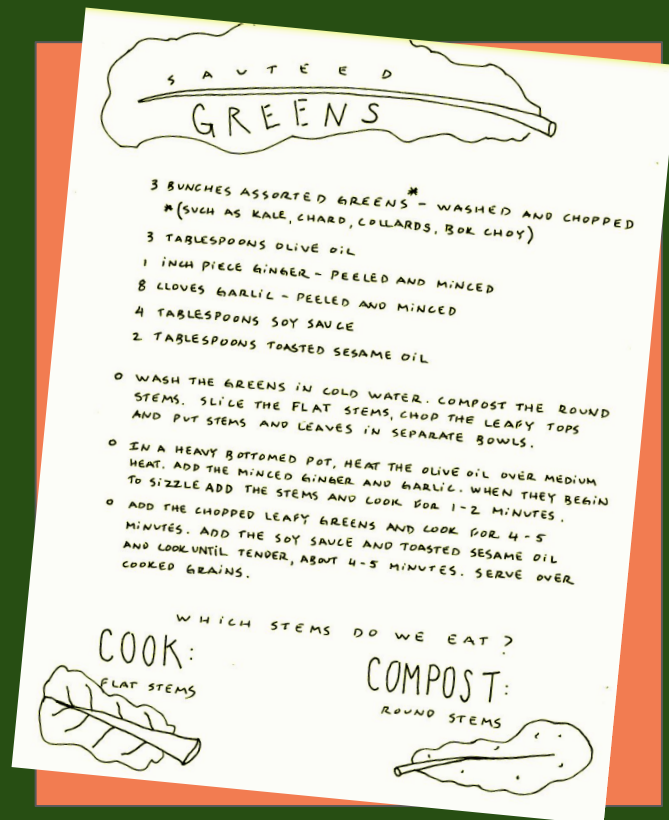 SAUTEED
GREENS
3 BUNCHES ASSORTED GREENS* - WASHED AND CHOPPED
*(SUCH AS KALE, CHARD, COLLARDS, BOK CHOY)
3 TABLESPOONS OLIVE OiL
1 iNCH PiECE GiNGER - PEELED AND MiNCED
8 CLOVES GARLiC - PEELED AND MiNCED
4 TABLESPOONS SOY SAUCE
2 TABLESPOONS TOASTED SESAME OiL
o WASH THE GREENS iN COLD WATER. COMPOST THE ROUND
STEMS. SLiCE THE FLAT STEMS, CHOP THE LEAFY TOPS
AND PUT STEMS AND LEAVES iN SEPARATE BOWLS.
o IN A HEAVY BOTTOMED POT, HEAT THE OLIVE OiL OVER MEDIUM
HEAT. ADD THE MiNCED GiNGER AND GARLiC. WHEN THEY BEGIN
TO SiZZLE ADD THE STEMS AND COOK FOR 1-2 MiNUTES.
o ADD THE CHOPPED LEAFY GREENS AND COOK FOR 4-5
MiNUTES. ADD THE SOY SAUCE AND TOASTED SESAME OiL
AND COOK UNTiL TENDER, ABOUT 4-5 MiNUTES. SERVE OVER
COOKED GRAiNS.
WHiCH STEMS DO WE EAT?
COOK:
FLAT STEMS
COMPOST:
ROUND STEMS